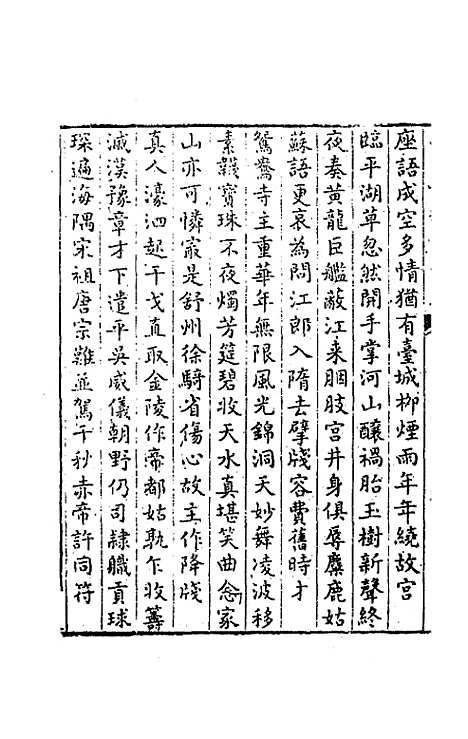 座語成空多情猶有臺城柳煙雨年年繞故宮
臨平湖草忽然開手掌河山釀禍胎玉樹新聲終
夜奏黃龍巨艦蔽江来胭肢宮井身俱辱麋鹿姑
蘇語更哀為問江郎入隋去擘牋容費舊時才
鴛鴦寺主重華年無限風光錦洞天妙舞凌波移
素襪寳珠不夜燭芳筵碧收天水真堪笑曲念家
山亦可憐㝡是舒州徐騎省傷心故主作降牋
真人濠泗起干戈直取金陵作帝都姑孰乍收籌
滅漢豫章才下遣平吳威儀朝野仍司隸職貢球
琛遍海隅宋祖唐宗難並駕千秋赤帝許同符